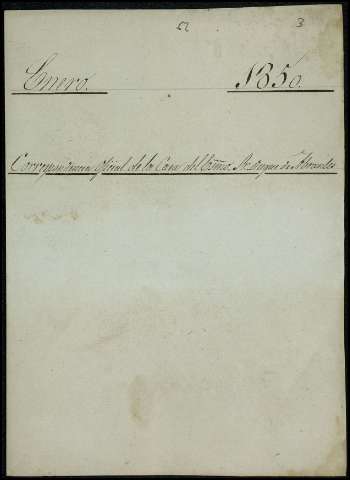 52 3
Enero. 1850.
Correspondencia Oficial de la Casa del Excmo. Sr. Duque de Abrantes